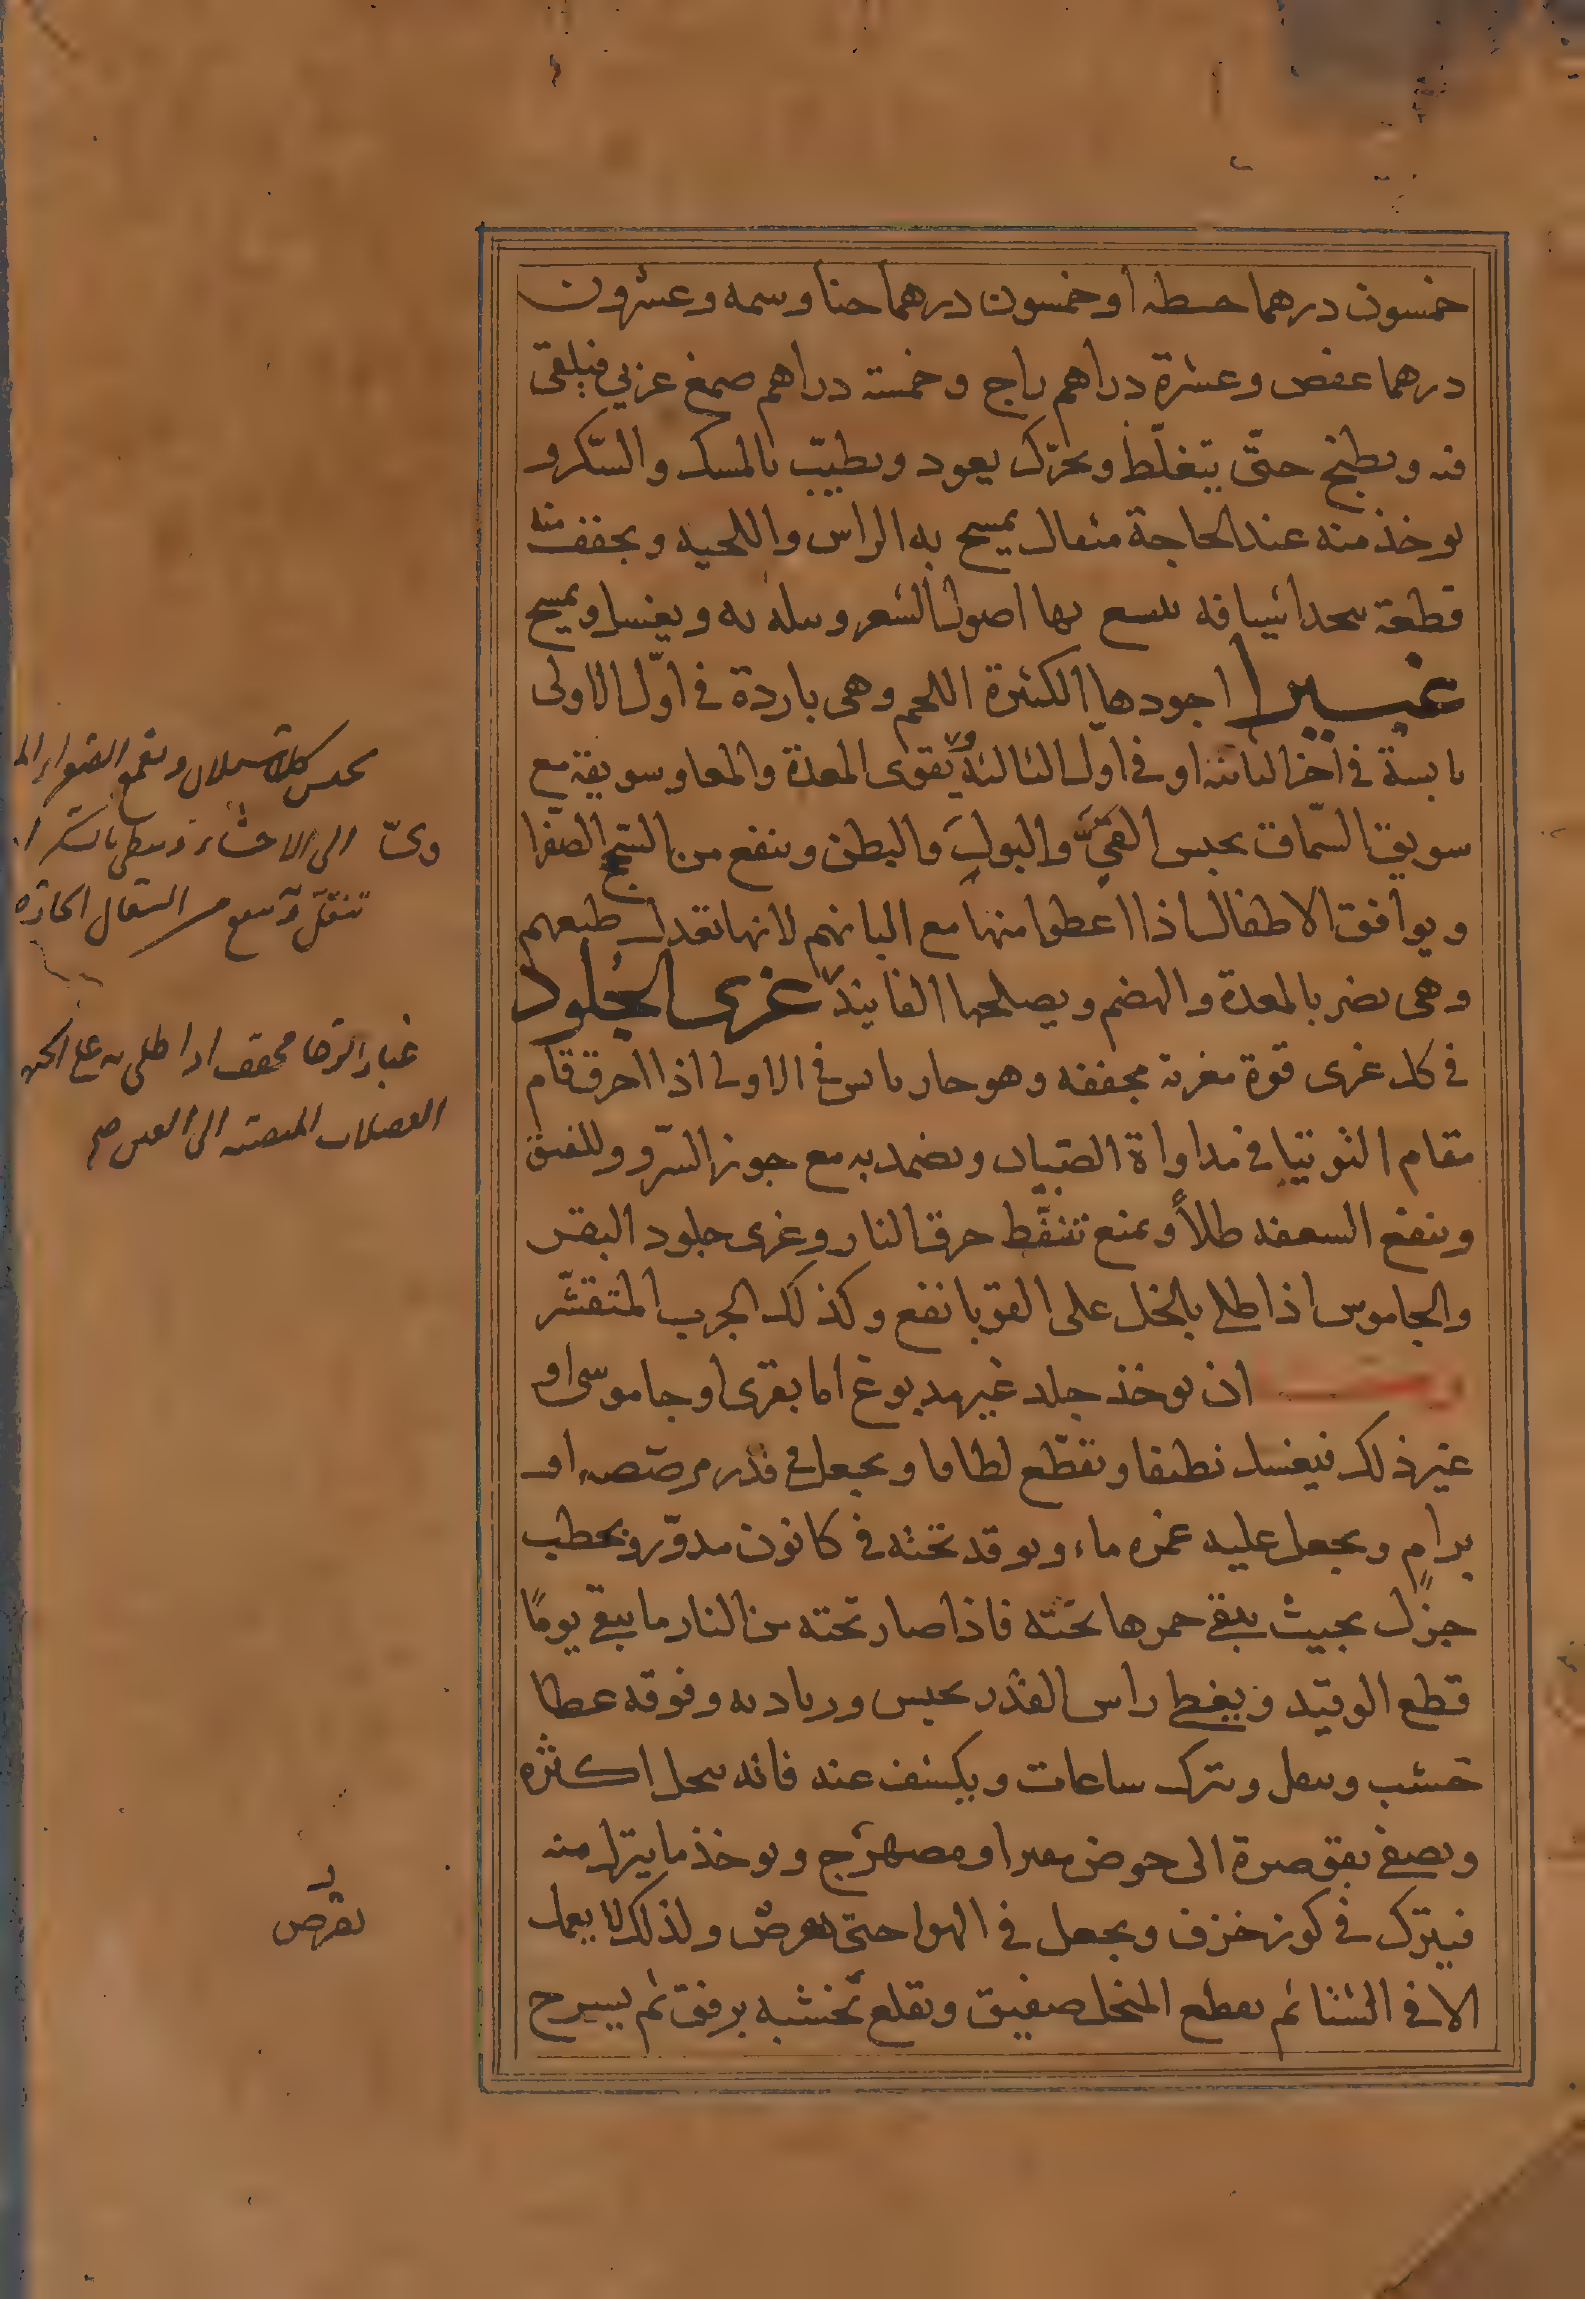 خمسون درهما حنطه او خمسون درهما حنا وسمه وعشرون
درهما عفص وعشرة دراهم زاج وخمسة دراهم صمغ عربي فيلقى
فيه ويطبخ حتّى يتغلّظ ويحرّك بعود ويطيّب بالمسك والسّكر و
يوخذ منه عند الحاجة مثقال يمسح به الراس واللحيه ويجفف منها
قطعة اصول الشعر ويغسل ويمسح
غبيرا اجودها الكثيرة اللحم وهى باردة فى اوّل الاولى
يابسة فى اخر الثانية او فى اوّل الثالثة يقوى المعدة والمعا وسويقه مع
سويق السّماق يحبس القىّ والبول والبطن وينفع من السّحج الصفرا
ويوافق الاطفال اذا اعطوا منها مع البانهم لانها تعدل طبعهم
وهى يضر بالمعدة والهضم ويصلحها الفانيد غرى الجلود
فى كل غرى قوة مغرية مجففه وهو حار يابس فى الاولى اذا احرق قام
مقام التوتيا فى مداواة ويضمد به مع جوز السّرو وللفتق
وينفع السعفه طلاً ويمنع تنفّط حرق النار وغرى جلود البقر
والجاموس اذا طلى بالخل على القوبا نفع وكذلك الجرب المتقشّر
ان يوخذ جلد غير مدبوغ اما بقرى او جاموسى او
غير ذلك فيغسل نظيفا ويقطّع لطافا ويجعل فى قدر مرصّصه او
برام ويجعل عليه غمره ماء ويوقد تحته فى كانون مدوّر وبحطب
جزل بحيث يبقى جمرها تحته فاذا صار تحته من النار ما يبقى يومًا
قطع الوقيد ويغطى راس القدر وفوقه غطا
خشب ويترك ساعات ويكشف عنه فانه اكثره
ويصفى الى حوض او صهرج ويوخذ ما ينزل منه
فيترك فى كوز خزف ويجعل فى الهوا حتى ولذلك لا يعمل
الا فى الشتا ثم يقطع المنخل صفيق ويقلع بخشبه برفق ثم يسرح
يحبس كل سيلان ويقمع الصفراء
الى الاحشاء
السعال الحارّه
غبار الرحا مجفف اذا طلى به على
الى العين صح
يقرص